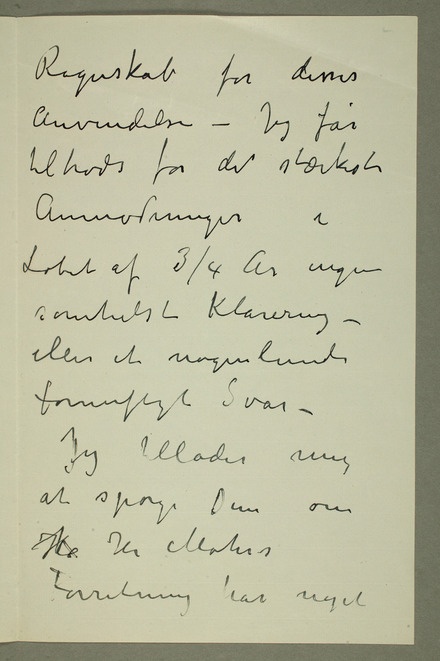 Regnskab for deres
Anvendelse – Jeg får
tiltrods for det stærkeste
Anmodninger i
Løbet af 3/4 År ingen
somhelst Klarering –
eller et nogenlunde
fornuftigt Svar –
Jeg tillader mig
at spørge Dem om
Hr Mohrs
Forretning har noget